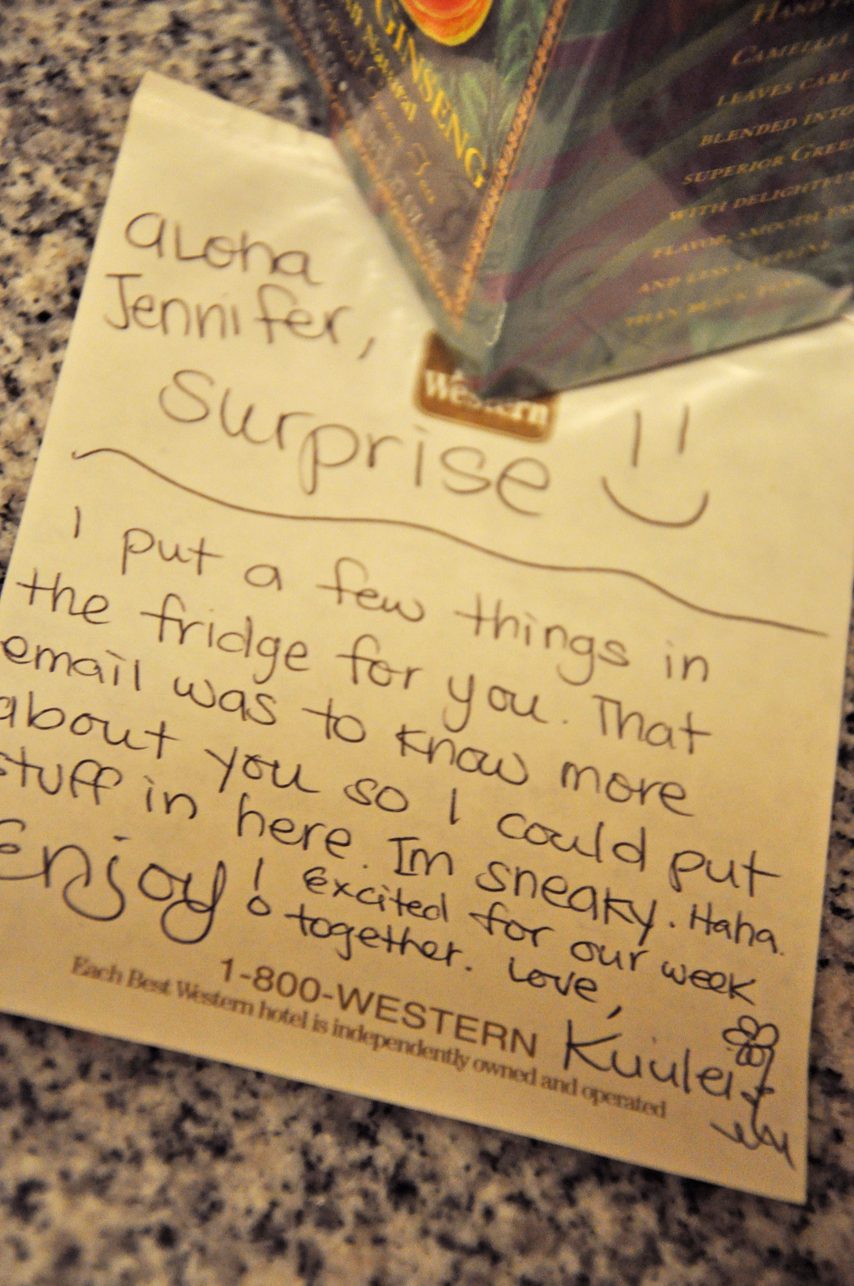 GINSENG
Natural
CAMELLIA
LEAVES CARE
BLENDED INTO
SUPERIOR GREE
WITH DELIGHTFUL
FLAVOR, SMOOTH TAS
AND LESS CAFFEINE
THAN BLACK
Western
aLoha
Jennifer,
Surprise
I put a few things in
the fridge for you. That
email was to know more
about you so I could put
stuff in here. Im sneaky. Haha.
Enjoy! Excited for our week
together. Love,
Kuulei
1-800-WESTERN
Each Best Western hotel is independently owned and operated